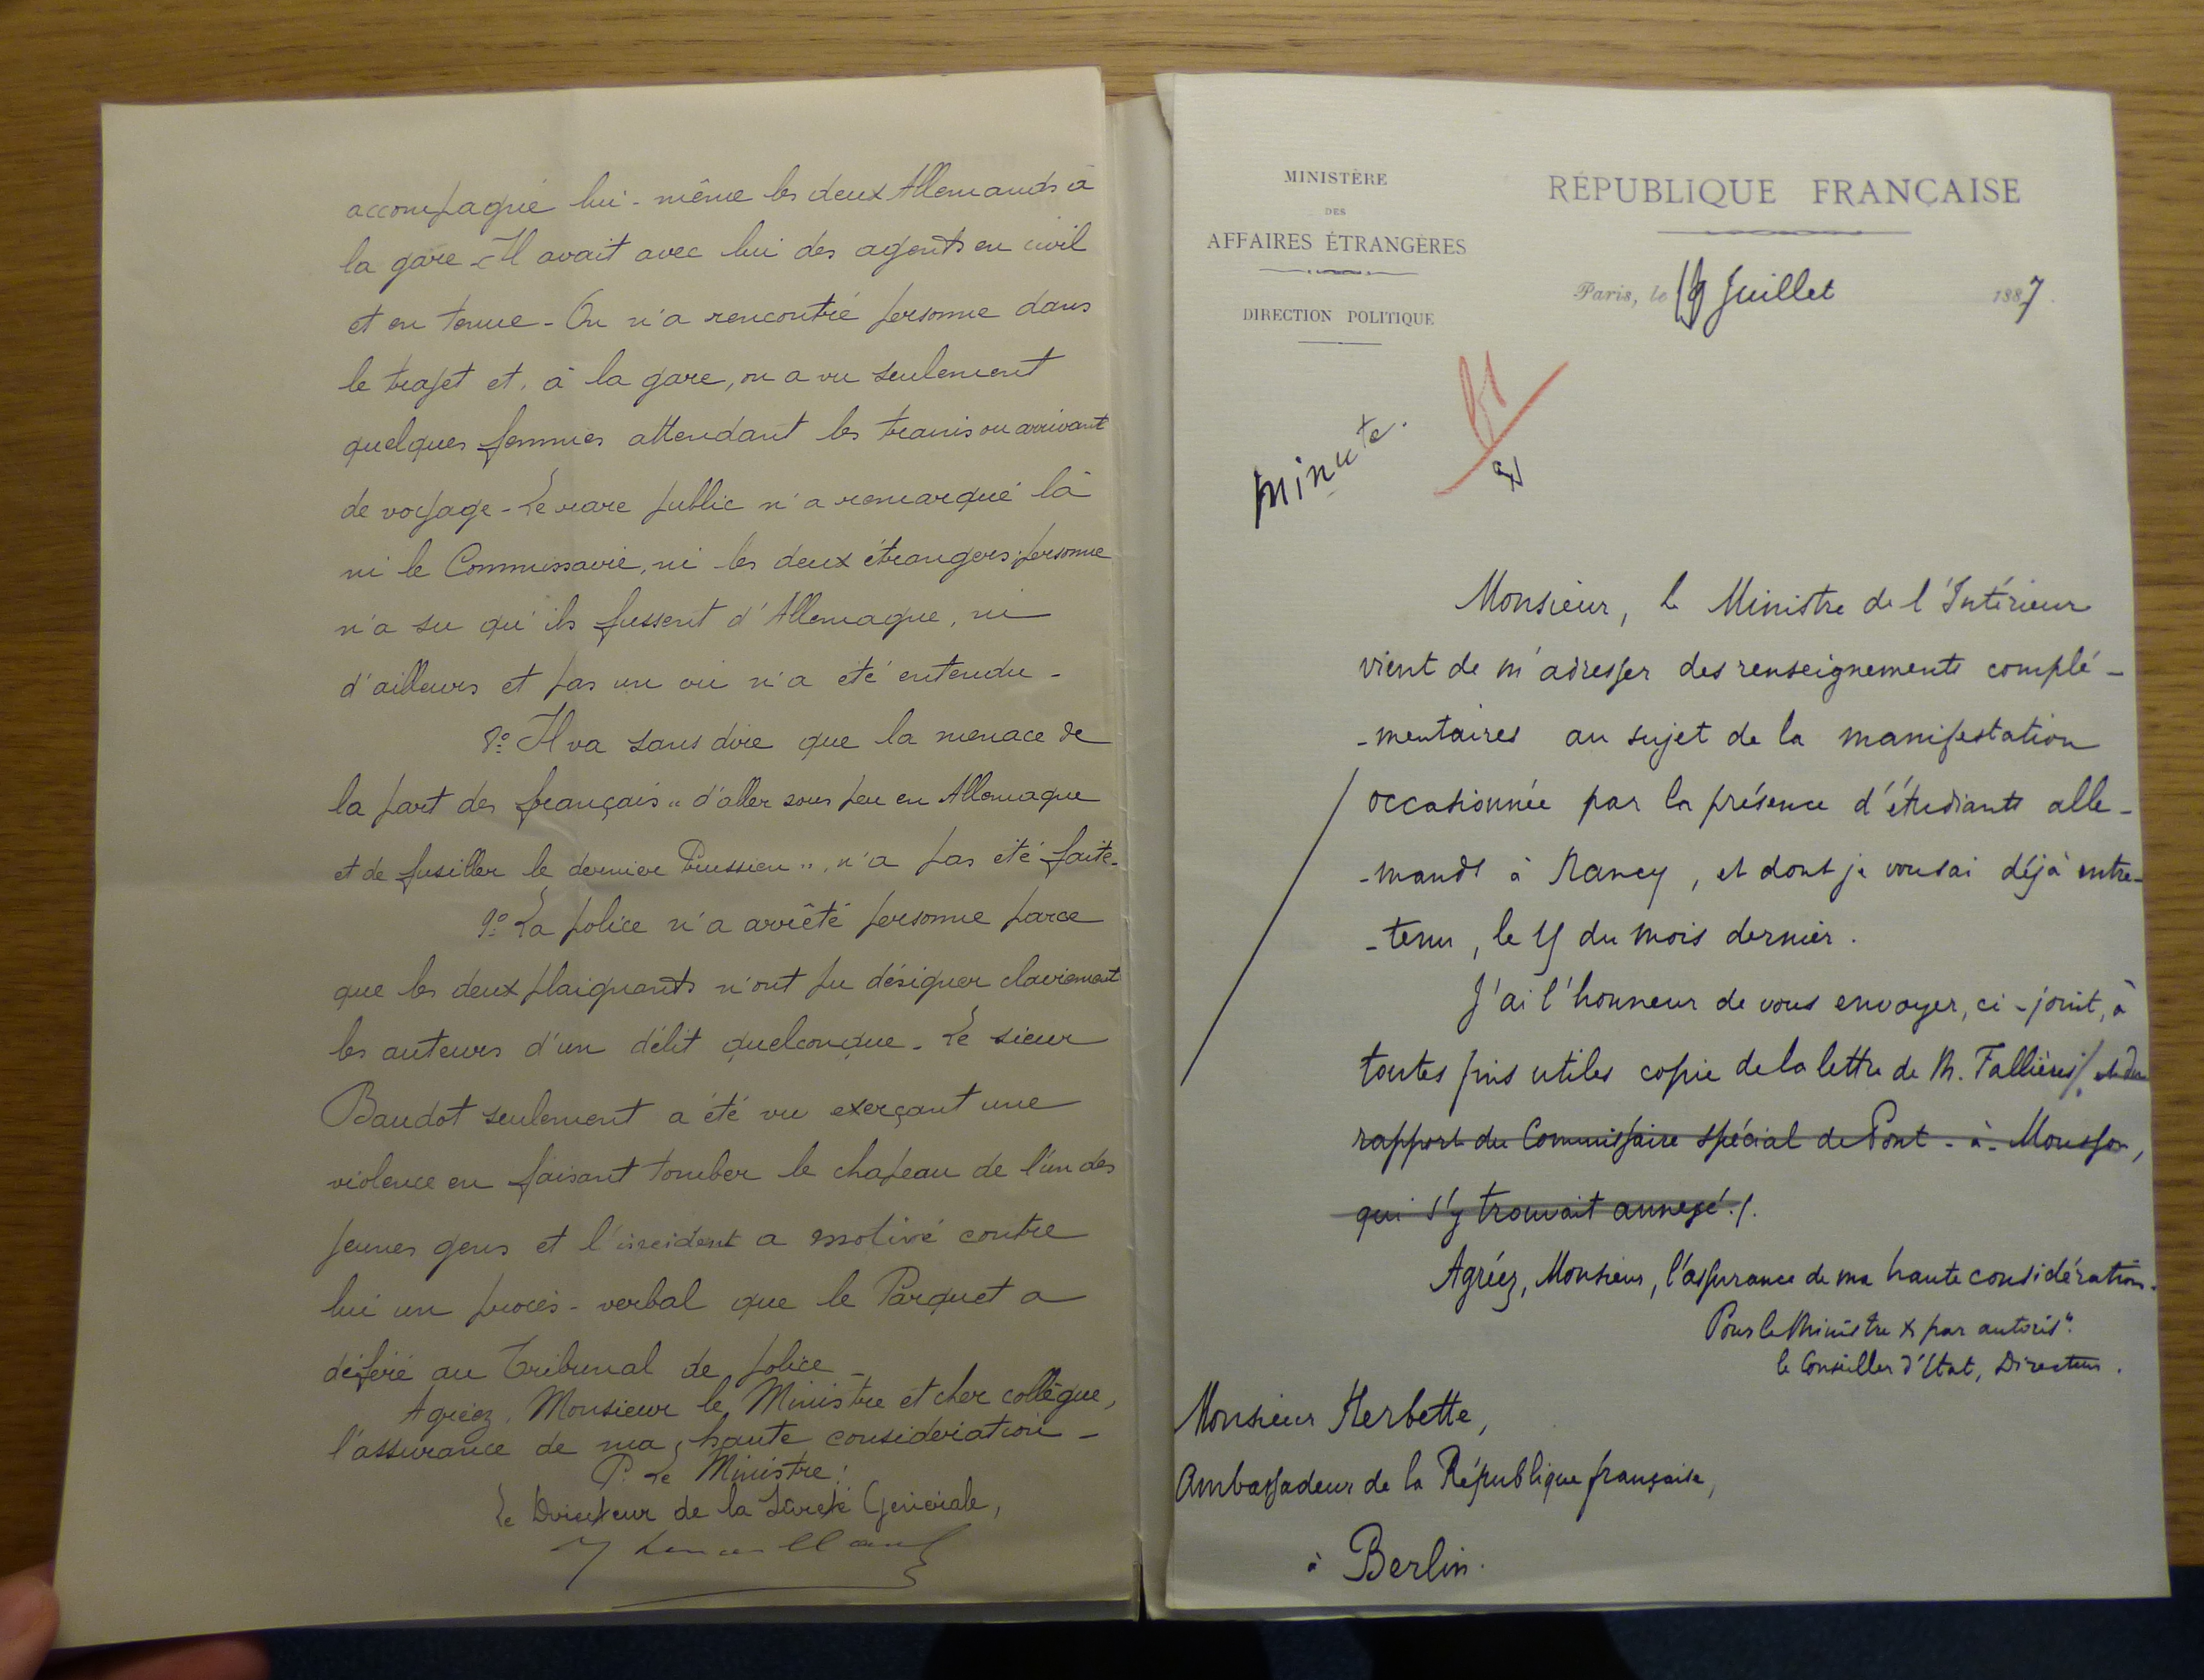 accompagné lui-même les deux Allemands à
la gare - Il avait avec lui des agents en civil
et en tenue - On n'a rencontré personne dans
le trajet et, à la gare, on a vu seulement
quelques femmes attendant les trains ou arrivant
de voyage - Le rare public n'a remarqué là
ni le Commissaire, ni les deux étrangers; personne
n'a su qu'ils fussent d'Allemagne, ni
d'ailleurs et pas un cri n'a été entendu -
8º Il va sans dire que la menace de
la part des français "d'aller sous peu en Allemagne
et de fusiller le dernier Prussien", n'a pas été faite -
9º La police n'a arrêté personne parce
que les deux plaignants n'ont pu désigner clairement
les auteurs d'un délit quelconque - Le sieur
Baudot seulement a été vu exerçant une
violence en faisant tomber le chapeau de l'un des
jeunes gens et l'incident a motivé contre
lui un procès-verbal que le Parquet a
déféré au Tribunal de police -
Agréez, Monsieur le Ministre et cher collègue,
l'assurance de ma haute considération -
P. Le Ministre:
Le Directeur de la Sûreté Générale,
MINISTÈRE
DES
AFFAIRES ÉTRANGÈRES
DIRECTION POLITIQUE
RÉPUBLIQUE FRANÇAISE
Paris, le 19 Juillet 1887
minute.
Monsieur, le Ministre de l'Intérieur
vient de m'adresser des renseignements complé-
-mentaires au sujet de la manifestation
occasionnée par la présence d'étudiants alle-
-mands à Nancy, et dont je vous ai déjà entre-
-tenu, le du mois dernier.
J'ai l'honneur de vous envoyer, ci-joint, à
toutes fins utiles copie de la lettre de M. Fallières/. et du
rapport du Commissaire spécial de Pont-à-Mousson,
qui s'y trouvait annexé./.
Agréez, Monsieur, l'assurance de ma haute considération.
Pour le Ministre & par autorison.
le Conseiller d'Etat, Directeur.
Monsieur Herbette,
Ambassadeur de la République française,
à Berlin.